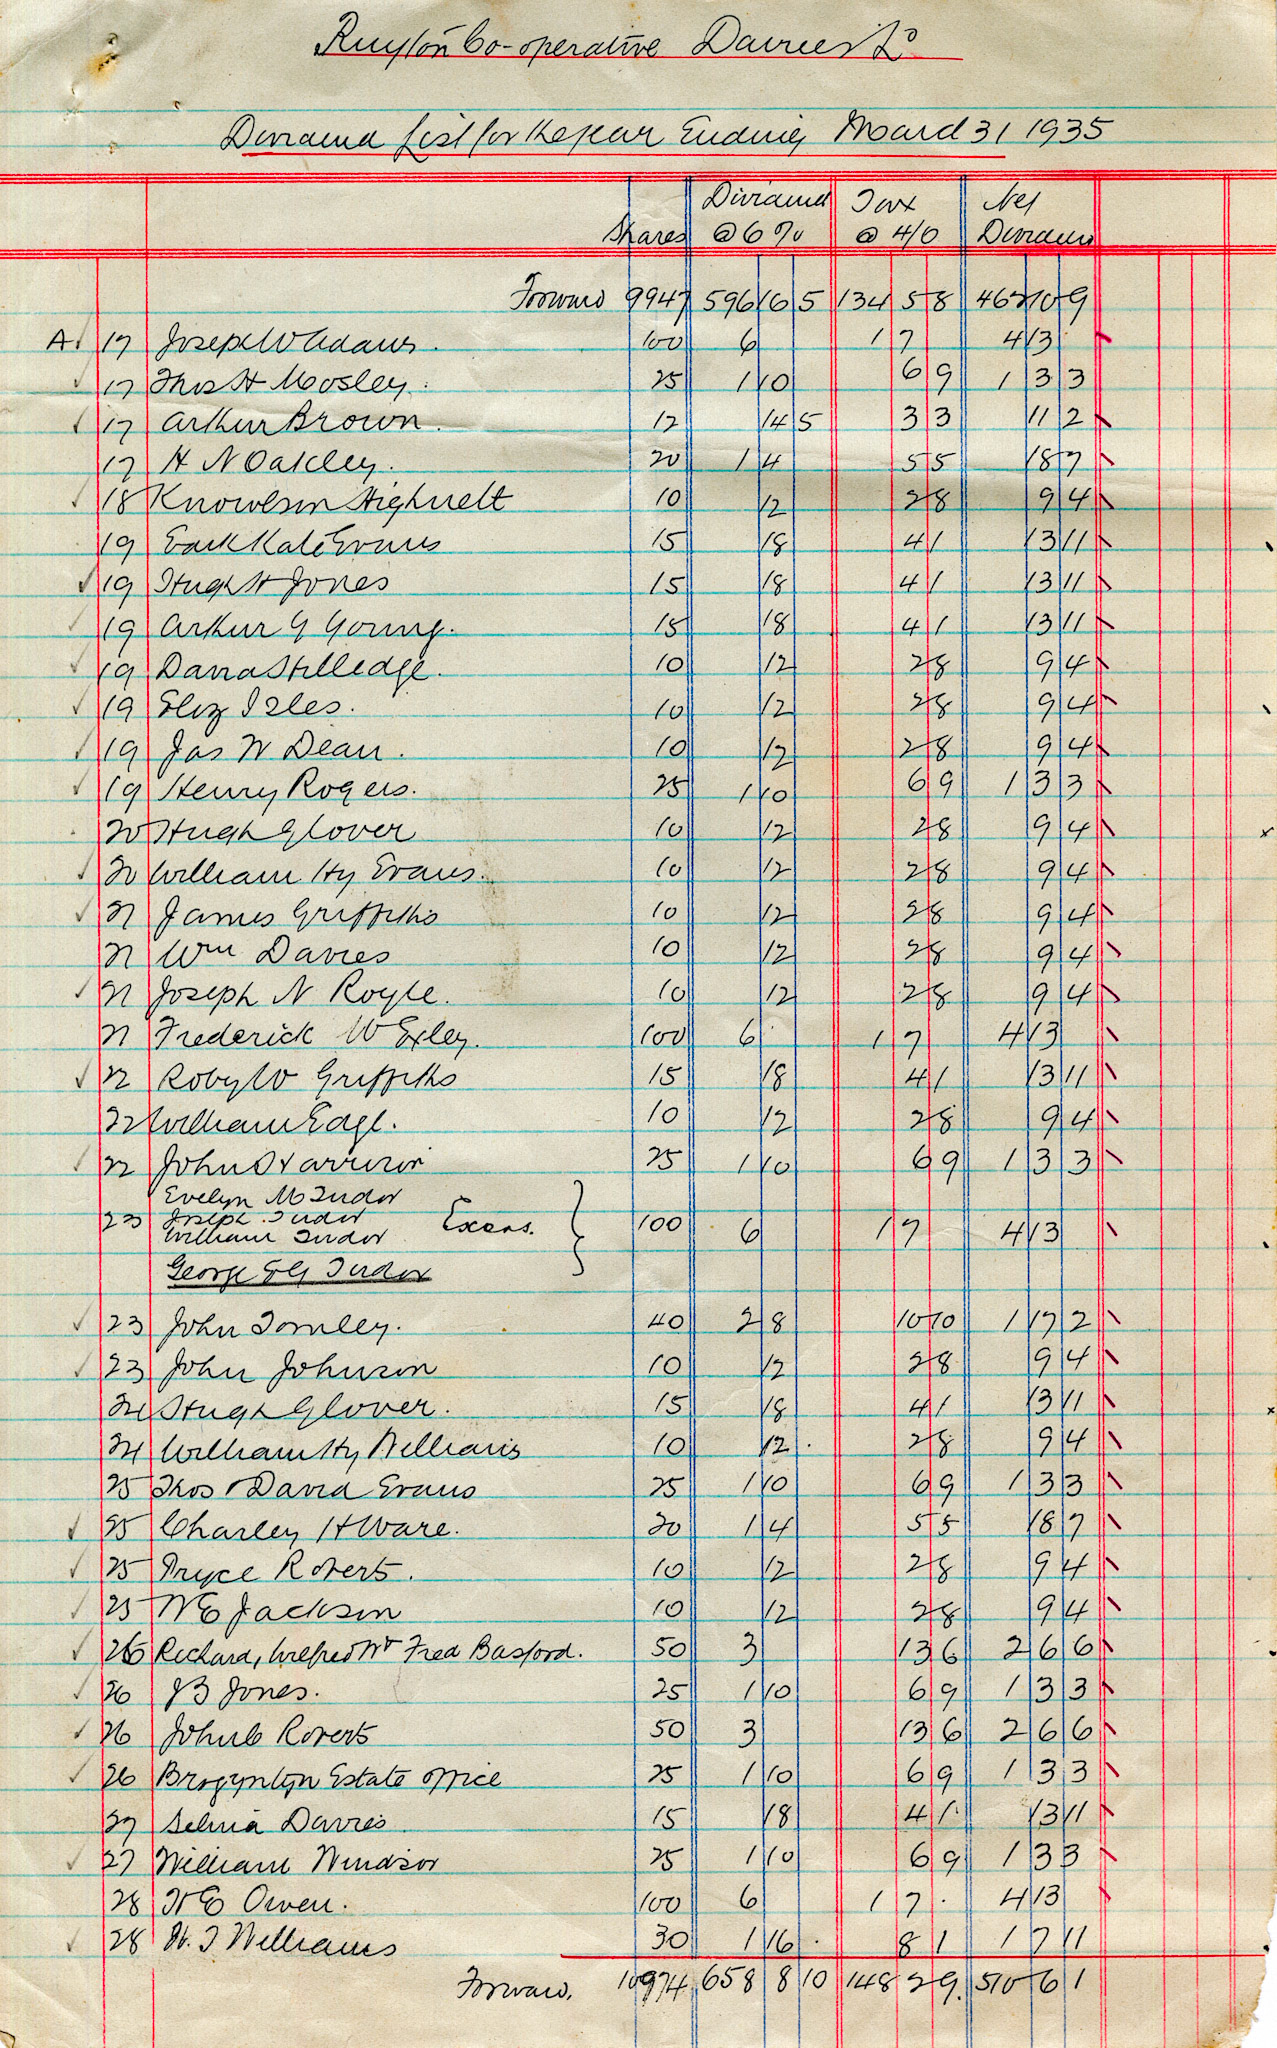 Ruyton Co-operative Dairies Lo
Dividend List for the year Ending March 31 1935
Shares Dividend @ 6% Tax @ 4/0 Net Dividend
Forward 9947 596 16 5 134 5 8 462 10 9
A 17 Joseph W Adams. 100 6 1 7 4 13
17 Thos H Mosley. 25 1 10 6 9 1 3 3
17 Arthur Brown. 12 14 5 3 3 11 2
17 H N Oakley. 20 1 4 5 5 18 7
18 Knowlson Highnett 10 12 2 8 9 4
19 Kate Evans 15 18 4 1 13 11
19 Hugh H Jones 15 18 4 1 13 11
19 Arthur G Young. 15 18 4 1 13 11
19 David Hilledge. 10 12 2 8 9 4
19 Eliz Isles. 10 12 2 8 9 4
19 Jas W Dean. 10 12 2 8 9 4
19 Henry Rogers. 25 1 10 6 9 1 3 3
20 Hugh Glover 10 12 2 8 9 4
20 William Hy Evans. 10 12 2 8 9 4
21 James Griffiths 10 12 2 8 9 4
21 Wm Davies 10 12 2 8 9 4
21 Joseph N Royle. 10 12 2 8 9 4
21 Frederick W Exley. 100 6 1 7 4 13
22 Roby W Griffiths 15 18 4 1 13 11
22 William Edge. 10 12 2 8 9 4
22 John Harrison 25 1 10 6 9 1 3 3
Evelyn M Tudor
23 Joseph Tudor Exors. 100 6 1 7 4 13
William Tudor
George Tudor
23 John Tomley. 40 2 8 10 10 1 17 2
23 John Johnson 10 12 2 8 9 4
24 Hugh Glover. 15 18 4 1 13 11
24 William Hy Williams 10 12 2 8 9 4
25 Thos & David Evans 25 1 10 6 9 1 3 3
25 Charley H Ware. 20 1 4 5 5 18 7
25 Pryce Roberts. 10 12 2 8 9 4
25 W E Jackson 10 12 2 8 9 4
26 Richard, Wilfred Wr Fred Basford. 50 3 13 6 2 6 6
26 J B Jones. 25 1 10 6 9 1 3 3
26 John C Roberts 50 3 13 6 2 6 6
26 Brogyntyn Estate Office 25 1 10 6 9 1 3 3
27 Selina Davies 15 18 4 1 13 11
27 William Windsor 25 1 10 6 9 1 3 3
28 W E Owen. 100 6 1 7 4 13
28 W. J Williams 30 1 16 8 1 1 7 11
Forward. 10974 658 8 10 148 2 9. 510 6 1